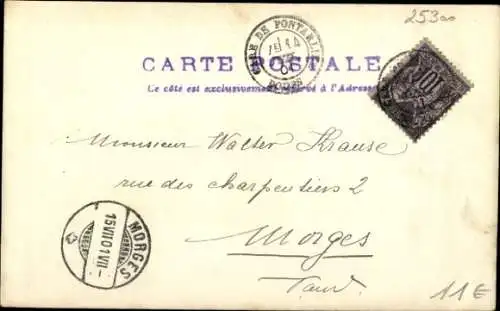 25300
GARE DE PONTARLIER
DOUBS
CARTE POSTALE
Ce côté est exclusivement réservé à l'Adresse
10
Monsieur Walter Krause
rue des charpentiers 2
Morges
Vaud.
MORGES
15 VII 01 VII -
11€